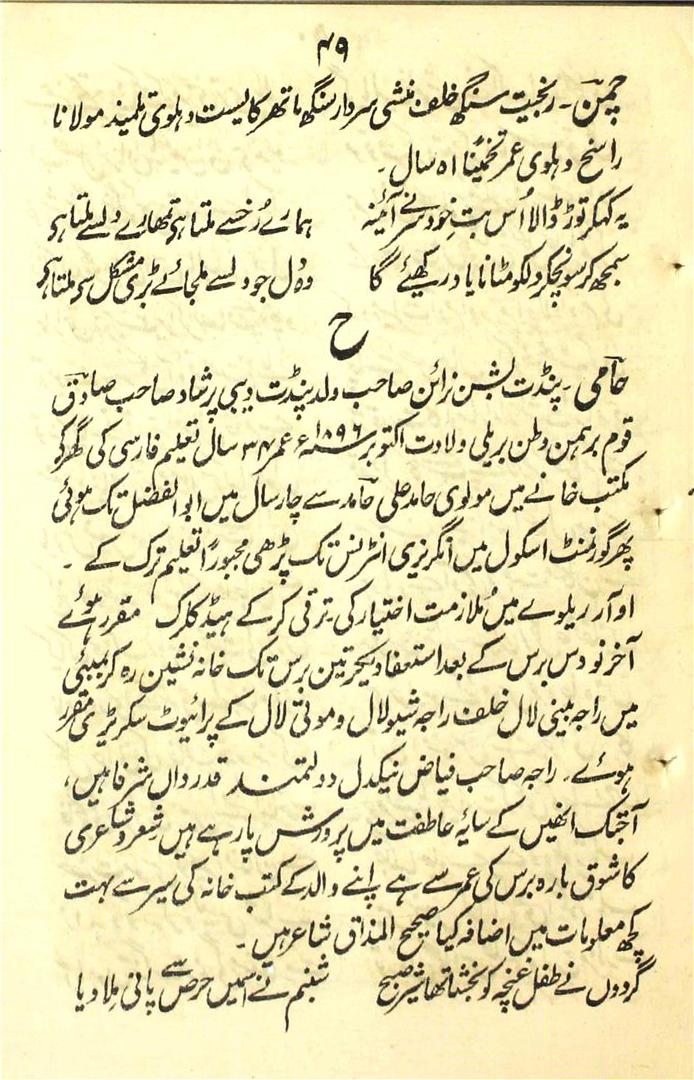 ۴۹
چمن۔ رنجیت سنگھ خلف منشی سردار سنگھ ماتھر کایست دہلوی تلمیذ مولانا
راسخ دہلوی عمر تخمیناً ۵۱ سال۔
یہ کہکر توڑ ڈالا اُس بتِ خودسر نے آئینہ ہمارے رُخسے ملتا ہی تمھارے دلسے ملتا ہی
سمجھ کر سونچکر دلکو مٹانا یاد رکھیئے گا وہ دل جو دلسے ملجائے بڑی مشکل سی ملتا ہی
ح
حامی۔ پنڈت بشن نرائن صاحب ولد پنڈت دیبی پرشاد صاحب صادق
قوم برہمن وطن بریلی ولادت اکتوبر ۱۸۹۶ء عمر ۳۴ سال تعلیم فارسی کی گھر کو
مکتب خانے میں مولوی حامد علی حامد سے چار سال میں ابوالفضل تک ہوئی
پھر گورنمنٹ اسکول میں انگریزی انٹرنس تک پڑھی مجبوراً تعلیم ترک کے۔
او آر ریلوے میں مُلازمت اختیار کی۔ ترقی کر کے ہیڈ کلرک مقرر ہوئے
آخر نو دس برس کے بعد استعفا دیکر تین برس تک خانہ نشین رہ کر بمبئی
میں راجہ بینی لال خلف راجہ شیولال و موتی لال کے پرائیوٹ سکرٹیری مقرر
ہوئے۔ راجہ صاحب فیاض نیکدل دولتمند قدردان شرفا ہیں،
آجتک انھیں کے سایۂ عاطفت میں پرورش پا رہے ہیں شعر و شاعری
کا شوق بارہ برس کی عمر سے ہے اپنے والد کے کتب خانہ کی سیر سے بہت
کچھ معلومات میں اضافہ کیا صحیح المذاق شاعر ہیں۔
گردوں نے طفل غنچہ کو بخشا تھا شیر صبح شبنم نے اسمیں حرص سے پانی مِلا دیا